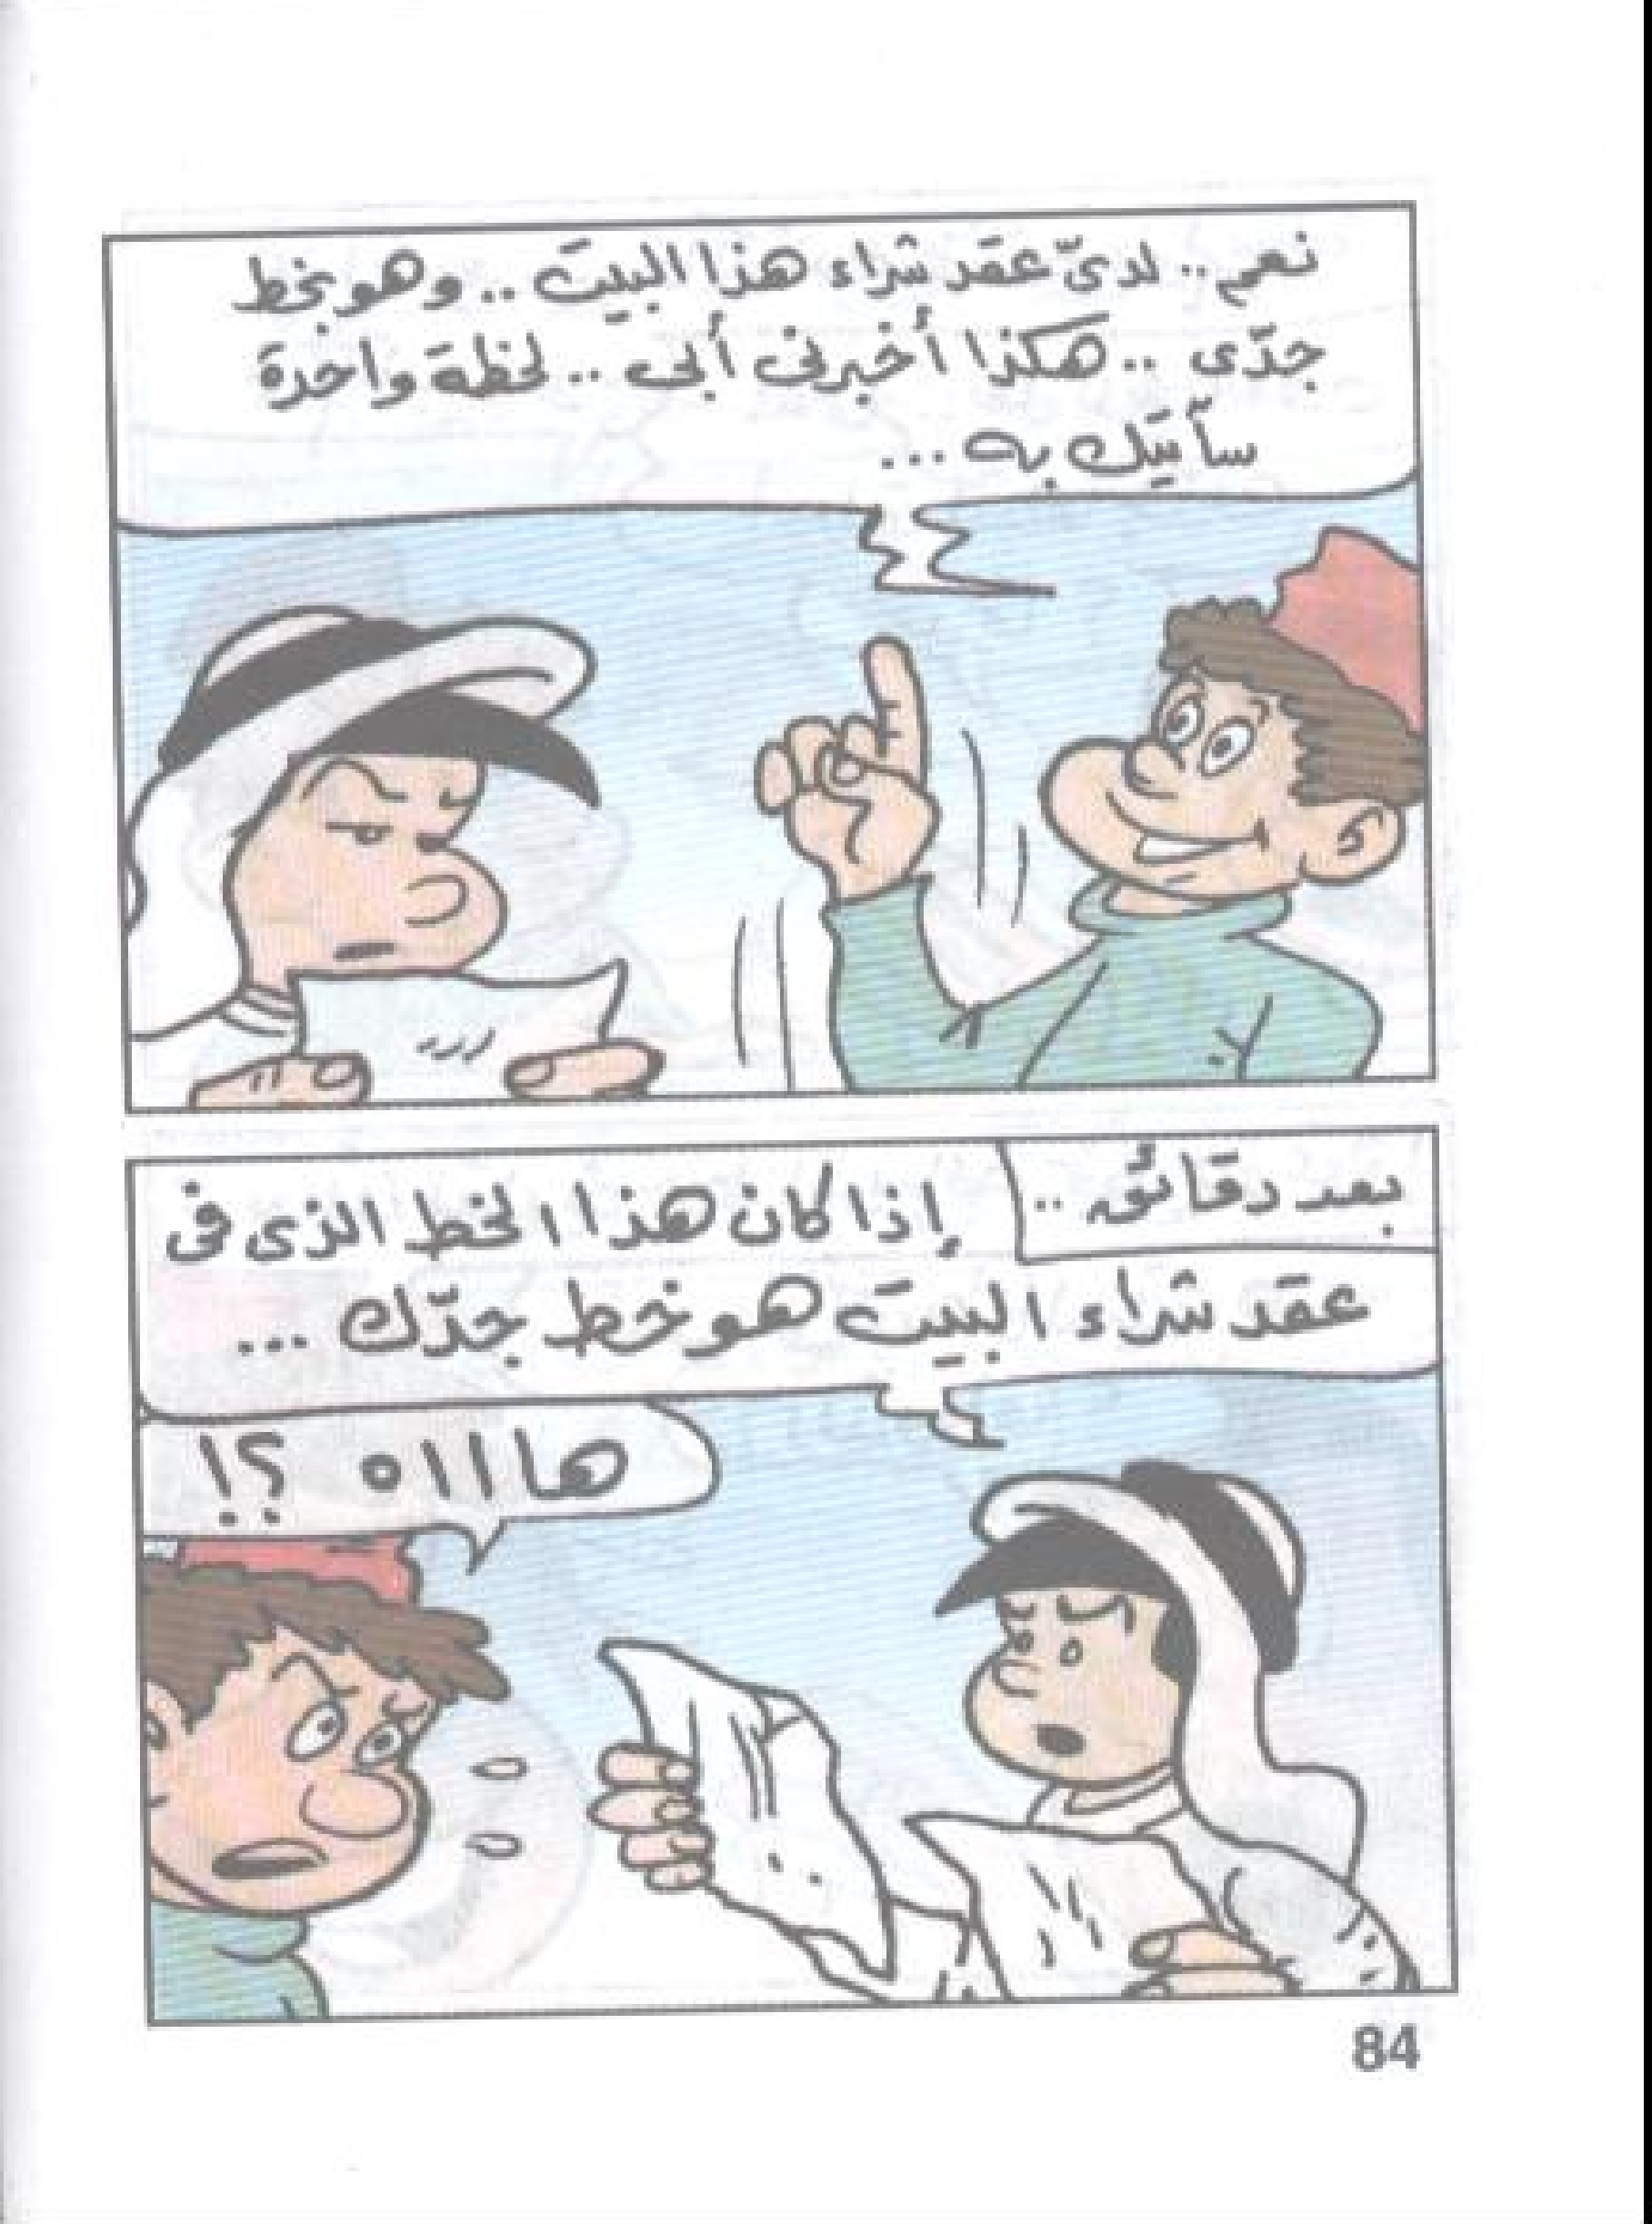 نعم .. لدىّ عقد شراء هذا البيت .. وهو بخط
جدّى .. هكذا أخبرنى أبى .. لحظة واحدة
سآتيك به ...
بعد دقائق ..
إذا كان هذا الخط الذى فى
عقد شراء البيت هو خط جدّك ...
هااااه ؟!
84